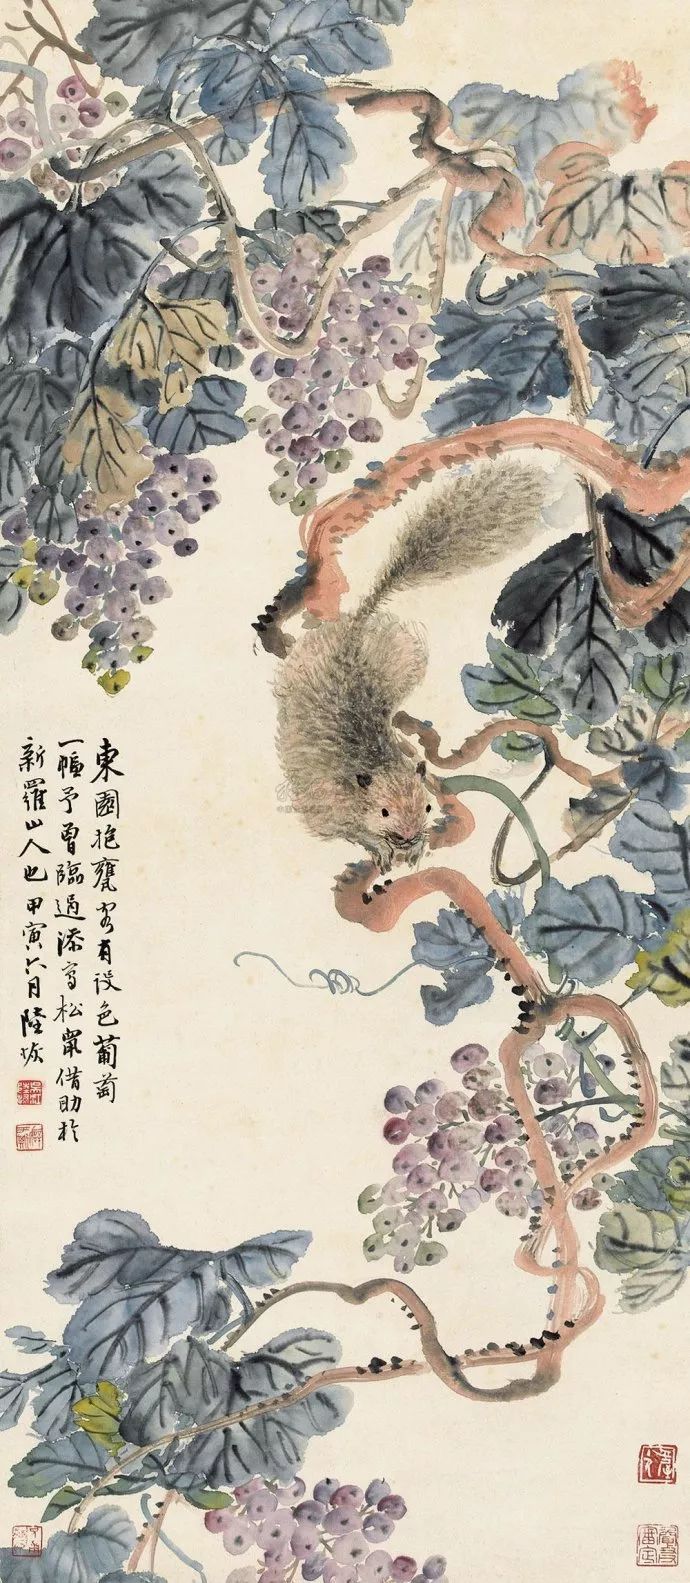 東園抱甕翁有設色葡萄
一幅予曾臨過添寫松鼠借助於
新羅山人也甲寅六月陸恢